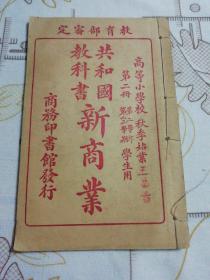 教育部審定
高等小學校 秋季始業
第二冊
學生用
共和國
教科書
新商業
商務印書館發行